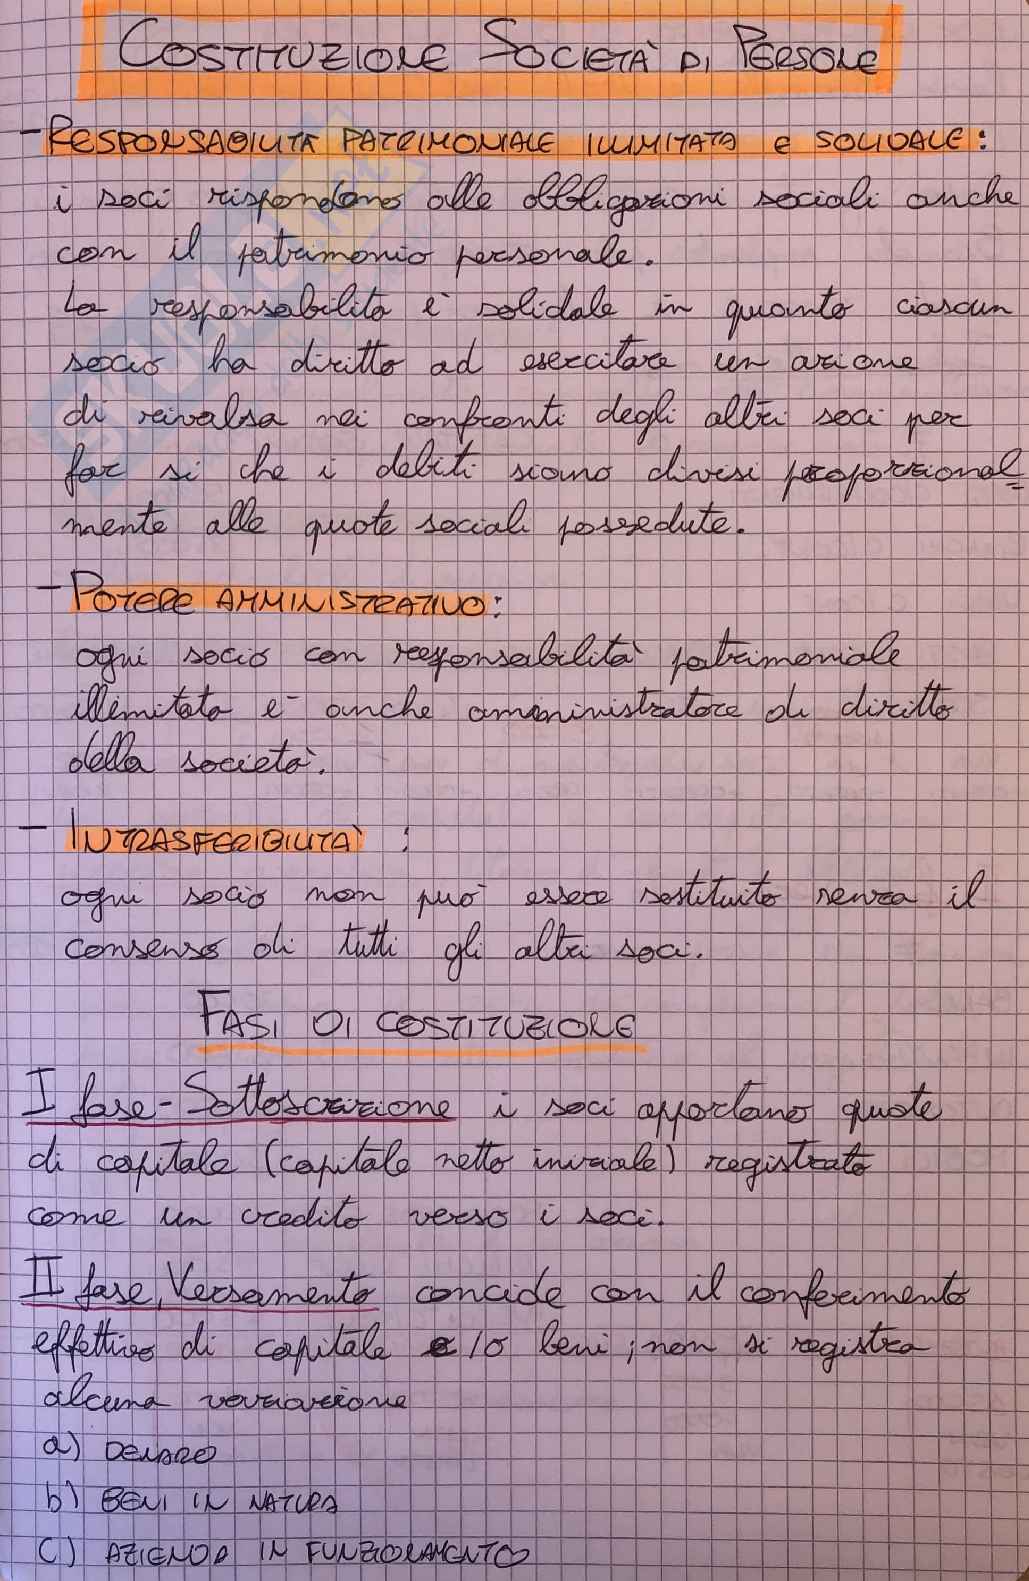 COSTITUZIONE SOCIETÀ DI PERSONE
- RESPONSABILITÀ PATRIMONIALE ILLIMITATA e SOLIDALE:
i soci rispondono alle obbligazioni sociali anche
con il patrimonio personale.
La responsabilità è solidale in quanto ciascun
socio ha diritto ad esercitare un azione
di rivalsa nei confronti degli altri soci per
far si che i debiti siano divisi proporzional=
mente alle quote sociali possedute.
- POTERE AMMINISTRATIVO:
ogni socio con responsabilità patrimoniale
illimitata è anche amministratore di diritto
della società.
- INTRASFERIBILITÀ :
ogni socio non può essere sostituito senza il
consenso di tutti gli altri soci.
FASI DI COSTITUZIONE
I fase - Sottoscrizione i soci apportano quote
di capitale (capitale netto iniziale) registrato
come un credito verso i soci.
II fase, Versamento concide con il conferimento
effettivo di capitale e/o beni; non si registra
alcuna variazione
a) DENARO
b) BENI IN NATURA
C) AZIENDA IN FUNZIONAMENTO